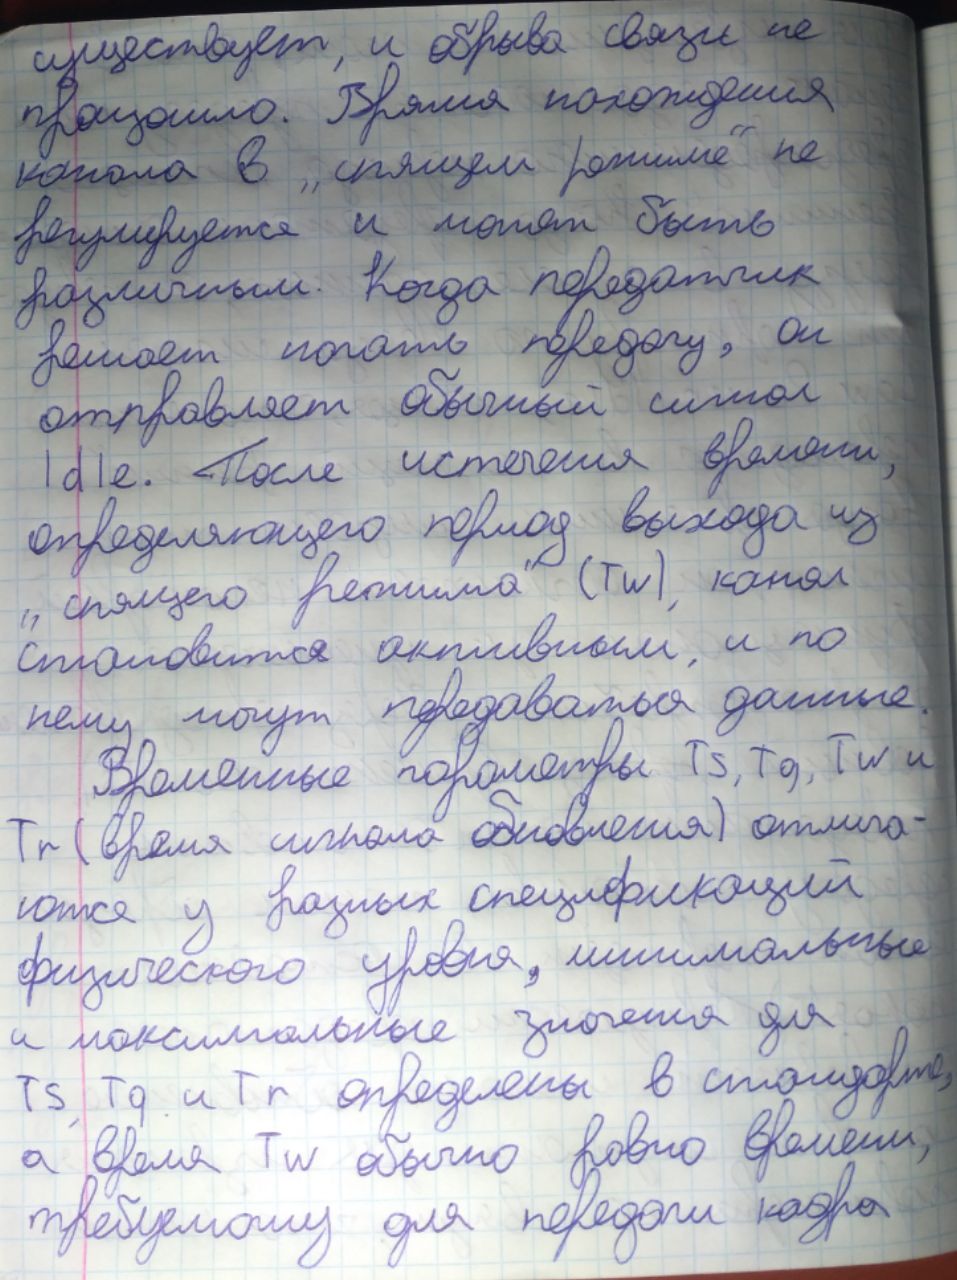 существует, и обрыва связи не
произошло. Время нахождения
канала в „спящем режиме" не
регулируется и может быть
различным. Когда передатчик
решает начать передачу, он
отправляет обычный сигнал
Idle. После истечения времени,
определяющего период выхода из
„спящего режима" (Tw), канал
становится активным, и по
нему могут передаваться данные.
Временные параметры Ts, Tq, Tw и
Tr (время сигнала обновления) отлича-
ются у разных спецификаций
физического уровня, минимальные
и максимальные значения для
Ts, Tq и Tr определены в стандарте,
а время Tw обычно равно времени,
требуемому для передачи кадра